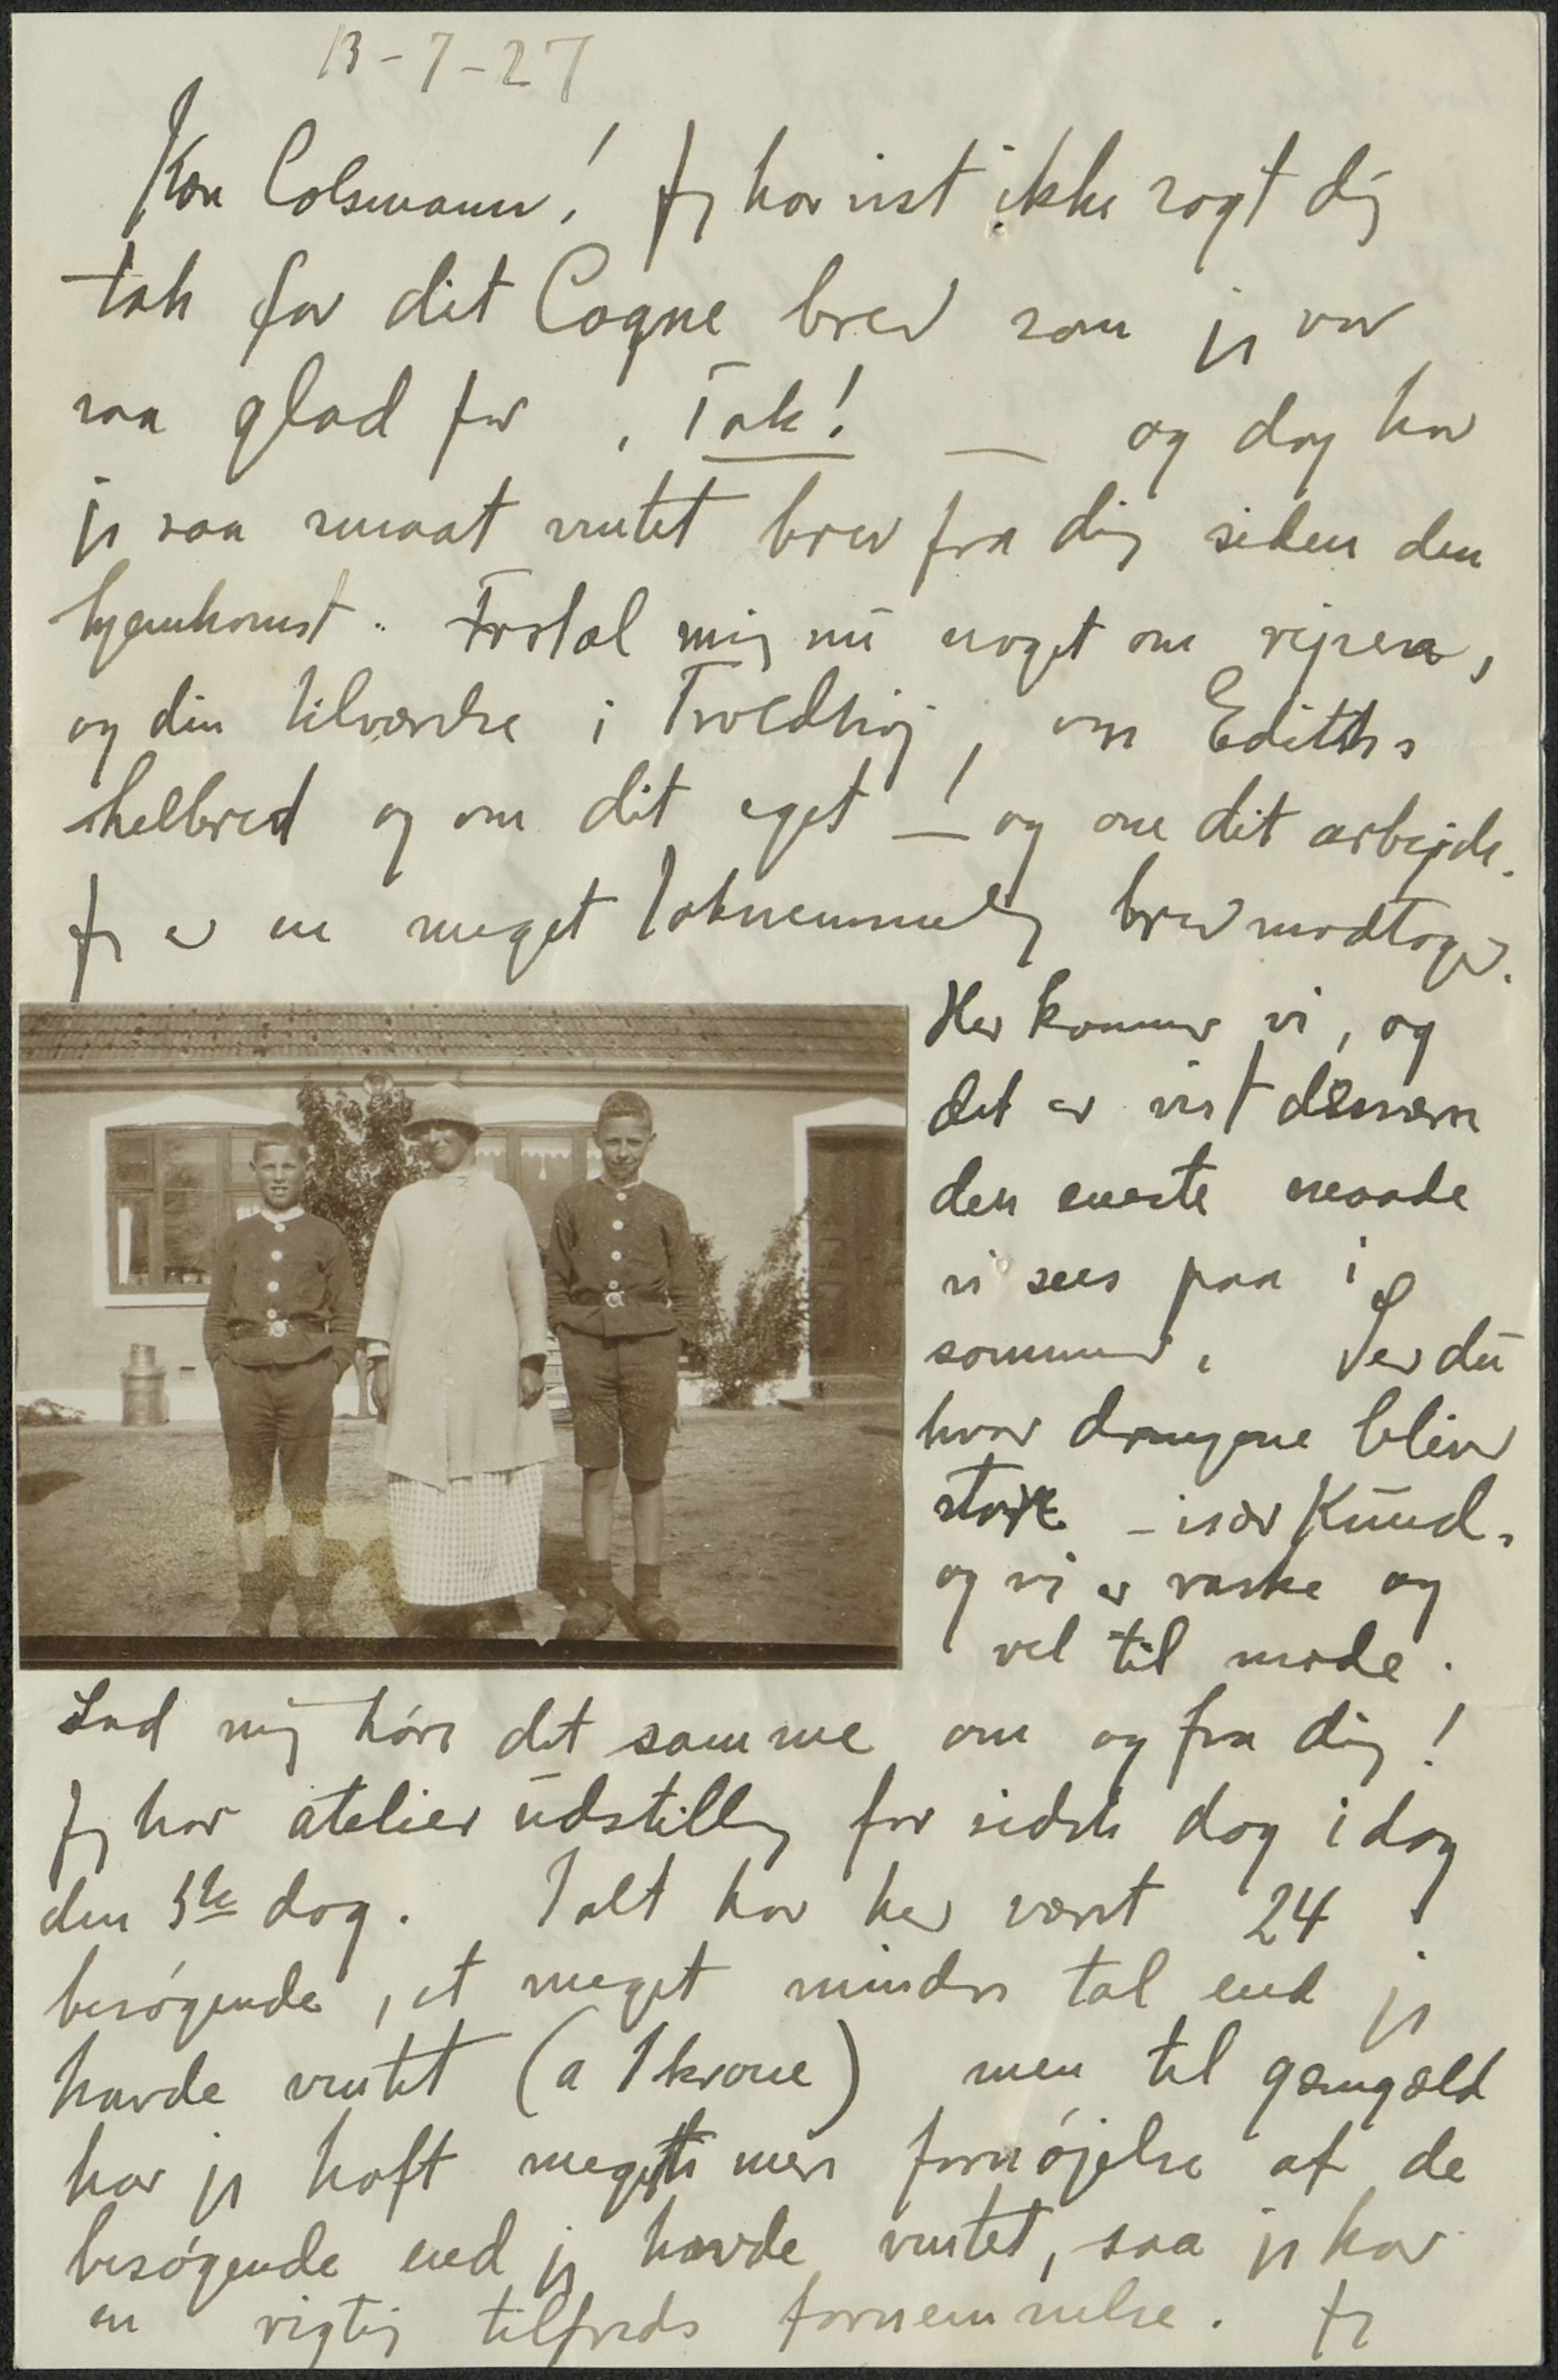 13-7-27
Kære Colsmann! Jeg har vist ikke sagt dig
tak for dit Cogne brev som jeg var
saa glad for, Tak! — og dog har
jeg saa smaat ventet brev fra dig siden den
hjemkomst. Fortæl mig nu noget om rejsen,
og din tilværelse i Troldhøj, om Ediths
helbred og om dit eget —! og om dit arbejde.
Jeg er en meget taknemmelig brevmodtager.
Her kommer vi, og
det er vist desværre
den eneste maade
vi sees paa i
sommer. Ser du
hvor drengene bliver
store – især Knud,
og vi er raske og
vel til mode.
Lad mig høre det samme om og fra dig!
Jeg har atelier udstilling for sidste dag idag
den dag. Ialt har her været 24
besøgende, et meget mindre tal end jeg
havde ventet (a 1 krone) men til gæmgæld
har jeg haft meget mere fornøjelse af de
besøgende end jeg havde ventet, saa jeg har
en rigtig tilfreds fornemmelse. Jeg